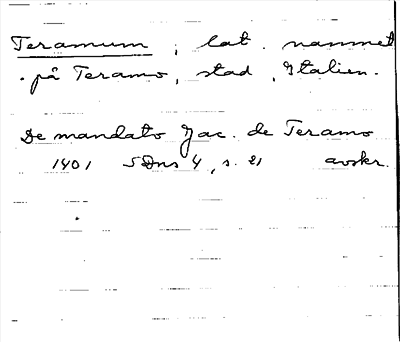 Teramum, lat. namnet
på Teramo, stad, Italien.
De mandato Jac. de Teramo
1401 SDns 4, s. 21 avskr.